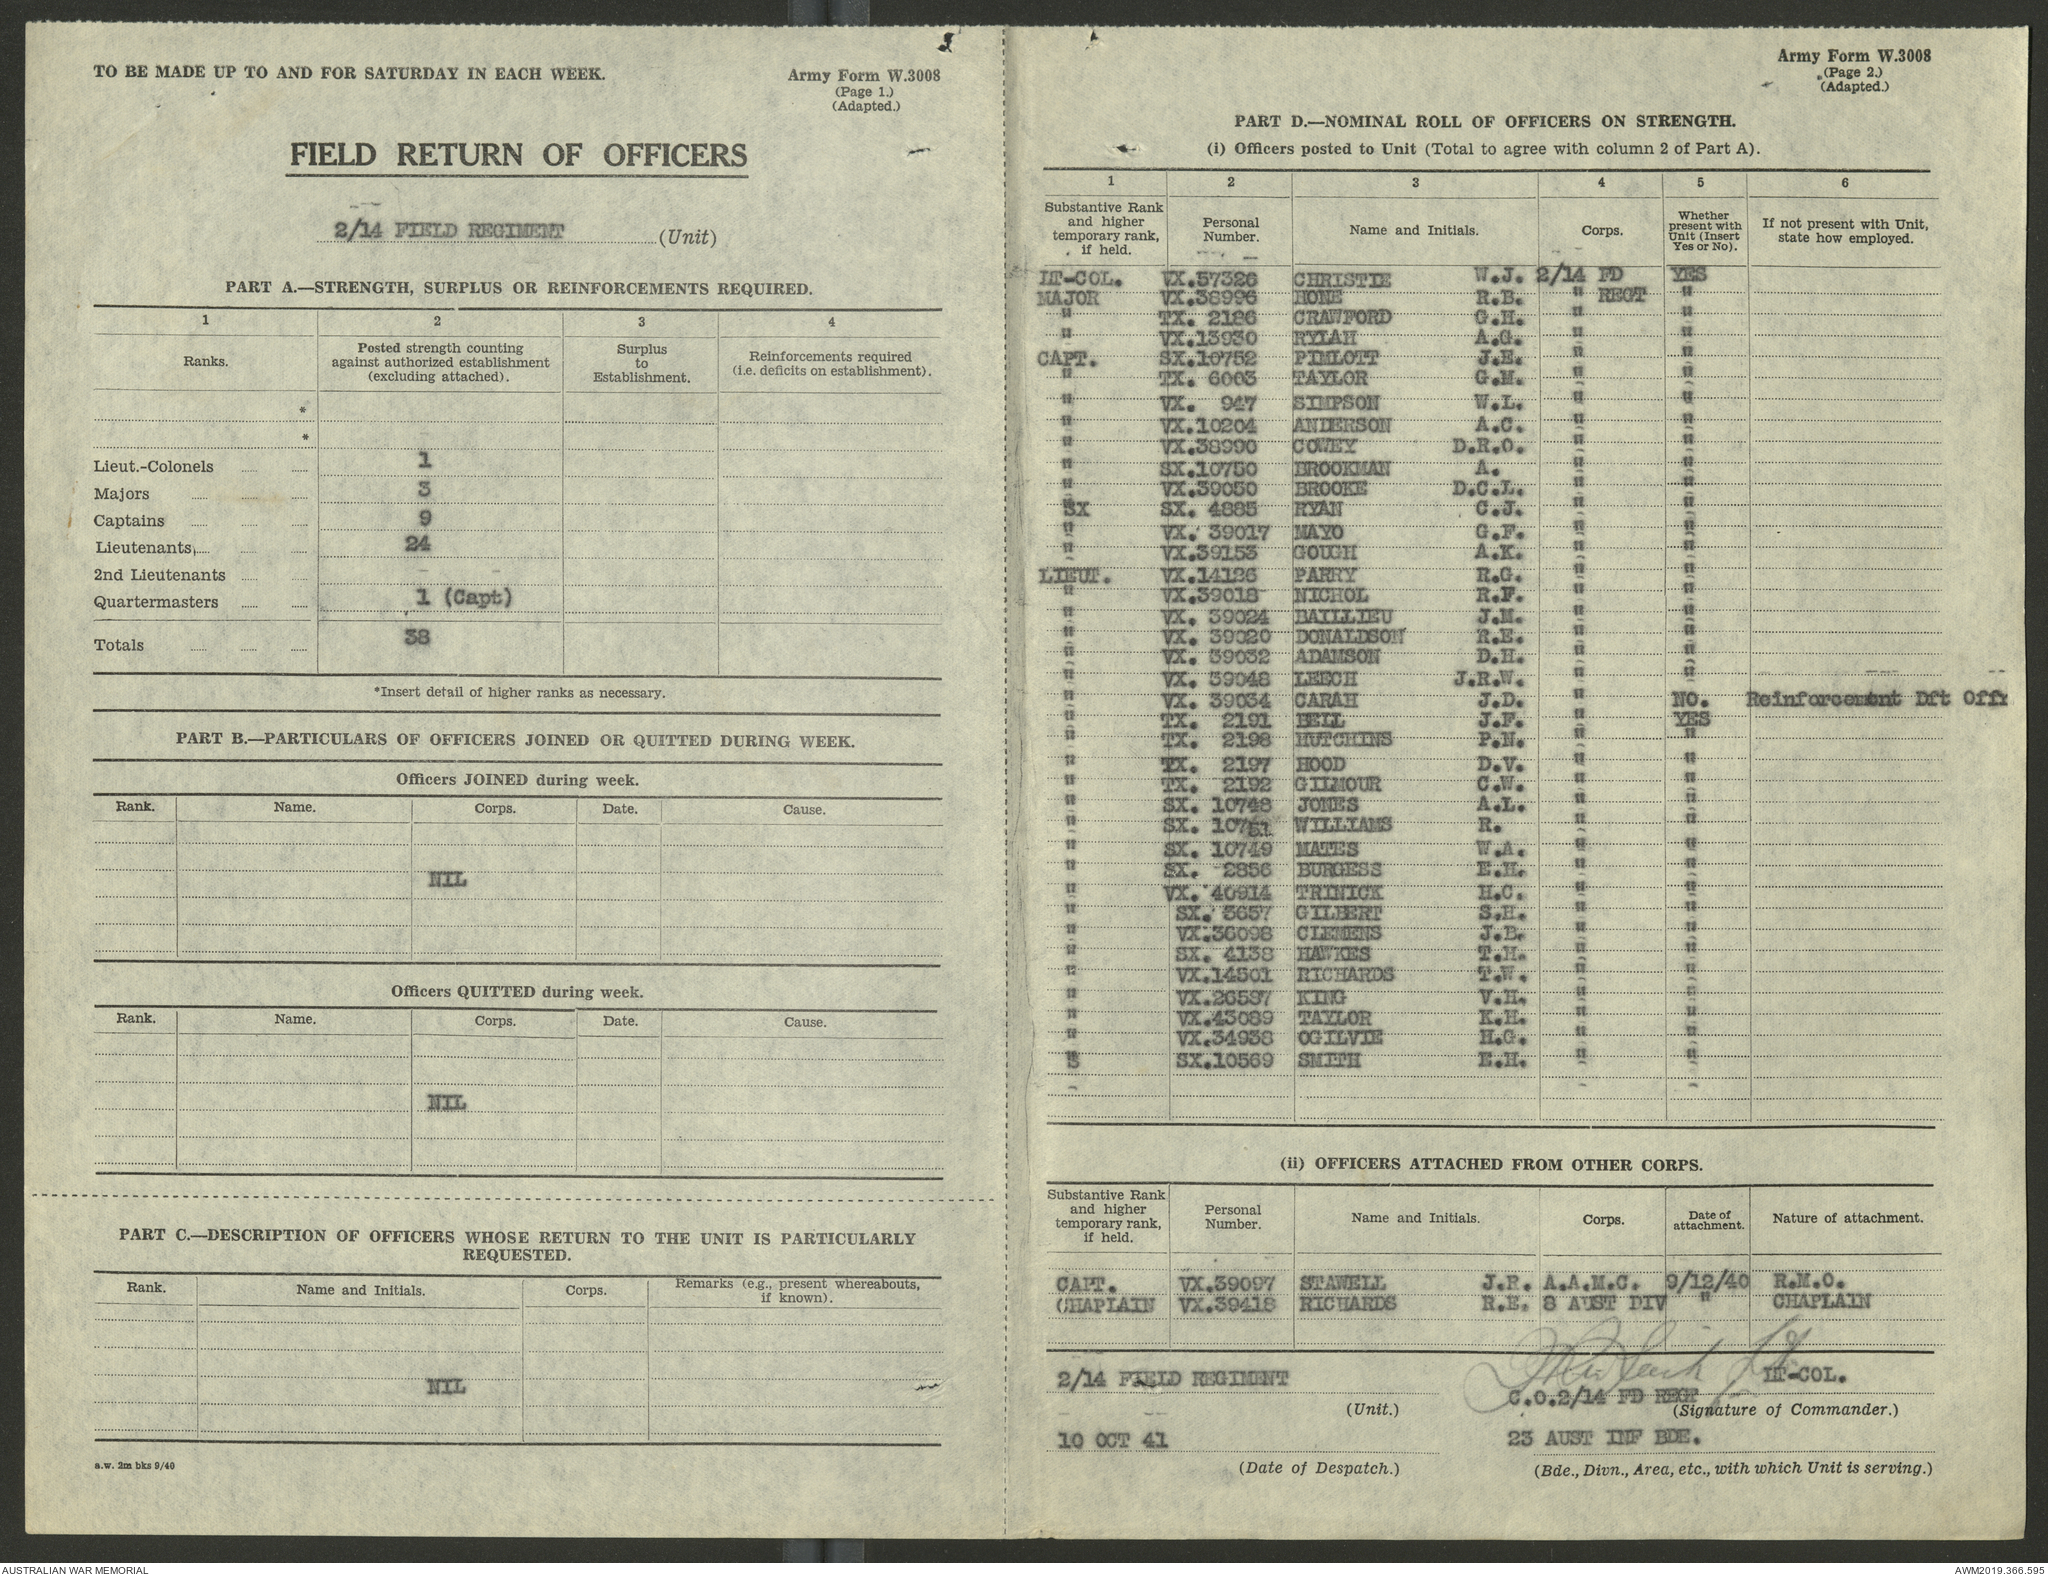 TO BE MADE UP TO AND FOR SATURDAY IN EACH WEEK.
Army Form W.3008
(Page 1.)
(Adapted.)
FIELD RETURN OF OFFICERS
2/14 FIELD REGIMENT (Unit)
PART A.—STRENGTH, SURPLUS OR REINFORCEMENTS REQUIRED.
1 2 3 4
Ranks. Posted strength counting against authorized establishment (excluding attached). Surplus to Establishment. Reinforcements required (i.e. deficits on establishment).
*
*
Lieut.-Colonels 1
Majors 3
Captains 9
Lieutenants 24
2nd Lieutenants -
Quartermasters 1 (Capt)
Totals 38
*Insert detail of higher ranks as necessary.
PART B.—PARTICULARS OF OFFICERS JOINED OR QUITTED DURING WEEK.
Officers JOINED during week.
Rank. Name. Corps. Date. Cause.
NIL
Officers QUITTED during week.
Rank. Name. Corps. Date. Cause.
NIL
PART C.—DESCRIPTION OF OFFICERS WHOSE RETURN TO THE UNIT IS PARTICULARLY
REQUESTED.
Rank. Name and Initials. Corps. Remarks (e.g., present whereabouts, if known).
NIL
a.w. 2m bks 9/40
Army Form W.3008
(Page 2.)
(Adapted.)
PART D.—NOMINAL ROLL OF OFFICERS ON STRENGTH.
(i) Officers posted to Unit (Total to agree with column 2 of Part A).
1 2 3 4 5 6
Substantive Rank and higher temporary rank, if held. Personal Number. Name and Initials. Corps. Whether present with Unit (Insert Yes or No). If not present with Unit, state how employed.
LT-COL. VX.57326 CHRISTIE W.J. 2/14 FD YES
MAJOR VX.38996 HONE R.B. " REGT "
" TX. 2186 CRAWFORD G.H. " "
" VX.13930 RYLAH A.G. " "
CAPT. SX.10752 PIMLOTT J.E. " "
" TX. 6003 TAYLOR G.M. " "
" VX. 947 SIMPSON W.L. " "
" VX.10204 ANDERSON A.C. " "
" VX.38990 COWEY D.R.O. " "
" SX.10750 BROOKMAN A. " "
" VX.39050 BROOKE D.C.L. " "
SX SX. 4885 RYAN C.J. " "
" VX. 39017 MAYO G.F. " "
" VX.39153 GOUGH A.K. " "
LIEUT. VX.14126 PARRY R.G. " "
" VX.39018 NICHOL R.F. " "
" VX. 39024 BAILLIEU J.M. " "
" VX. 39020 DONALDSON R.E. " "
" VX. 39032 ADAMSON D.H. " "
" VX. 39048 LEECH J.R.W. " "
" VX. 39034 CARAH J.D. " NO. Reinforcement Dft Offr
" TX. 2191 BELL J.F. " YES
" TX. 2198 HUTCHINS P.N. " "
" TX. 2197 HOOD D.V. " "
" TX. 2192 GILMOUR C.W. " "
" SX. 10748 JONES A.L. " "
" SX. 10751 WILLIAMS R. " "
" SX. 10749 MATES W.A. " "
" SX. 2856 BURGESS E.H. " "
" VX. 40914 TRINICK H.C. " "
" SX. 3657 GILBERT S.H. " "
" VX.36098 CLEMENS J.B. " "
" SX. 4138 HAWKES T.H. " "
" VX.14501 RICHARDS T.W. " "
" VX.26537 KING V.H. " "
" VX.43089 TAYLOR K.H. " "
" VX.34938 OGILVIE H.G. " "
S SX.10569 SMITH E.H. " "
(ii) OFFICERS ATTACHED FROM OTHER CORPS.
Substantive Rank and higher temporary rank, if held. Personal Number. Name and Initials. Corps. Date of attachment. Nature of attachment.
CAPT. VX.39097 STAWELL J.R. A.A.M.C. 9/12/40 R.M.O.
CHAPLAIN VX.39418 RICHARDS R.E. 8 AUST DIV " CHAPLAIN
2/14 FIELD REGIMENT LT-COL.
C.O.2/14 FD REGT
(Unit.) (Signature of Commander.)
10 OCT 41 23 AUST INF BDE.
(Date of Despatch.) (Bde., Divn., Area, etc., with which Unit is serving.)
AUSTRALIAN WAR MEMORIAL
AWM2019.366.595